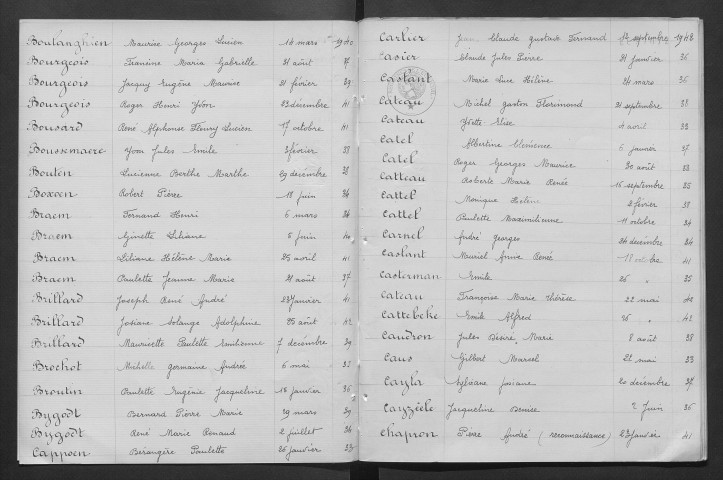 Boulanghien Maurice Georges Lucien 14 mars 1940
Bourgeois Francine Maria Gabrielle 21 août 35
Bourgeois Jacquy Eugène Maurice 21 février 39
Bourgeois Roger Henri Yvon 23 décembre 41
Bousard René Alphonse Fleury Lucien 17 octobre 41
Boussemaere Yvon Jules Emile 3 février 38
Bouten Lucienne Berthe Marthe 29 décembre 35
Boxoen Robert Pierre 18 juin 34
Braem Fernand Henri 6 mars 34
Braem Ginette Liliane 6 juin 40
Braem Liliane Hélène Marie 25 avril 41
Braem Paulette Jeanne Marie 21 août 37
Brillard Joseph René André 28 janvier 41
Brillard Josiane Solange Adolphine 25 août 42
Brillard Mauricette Paulette Emilienne 7 décembre 39
Brochot Michelle Germaine Andrée 6 mai
Broutin Paulette Eugénie Jacqueline 18 janvier 36
Bygodt Bernard Pierre Marie 29 mars 39
Bygodt René Marie Renaud 2 juillet 34
Cappoen Berangère Paulette 26 janvier 33
Carlier Jean Claude Gustave Fernand 14 septembre 1942
Casier Claude Jules Pierre 31 janvier 36
Castant Marie Luce Hélène 24 mars 36
Cateau Michel Gaston Florimond 21 septembre 38
Cateau Yvette Elise 4 avril 33
Catel Albertine Clémence 6 janvier 37
Catel Roger Georges Maurice 30 août 33
Catteau Roberte Marie Renée 16 septembre 35
Cattel Monique Hélène 2 février 38
Cattel Paulette Maximilienne 11 octobre 34
Carnel André Georges 24 décembre 34
Castant Muriel Anne Renée octobre 41
Casterman Emile 26 " 35
Cateau Françoise Marie Thérèse 22 mai 40
Cattebeke Emile Alfred 26 " 42
Caudron Jules Désiré Marie 8 août 38
Caus Gilbert Marcel 22 mai 33
Cayla Sylviane Josiane 20 décembre 37
Cayzeele Jacqueline Denise 2 juin 36
Chapron Pierre André (reconnaissance) 23 janvier 41